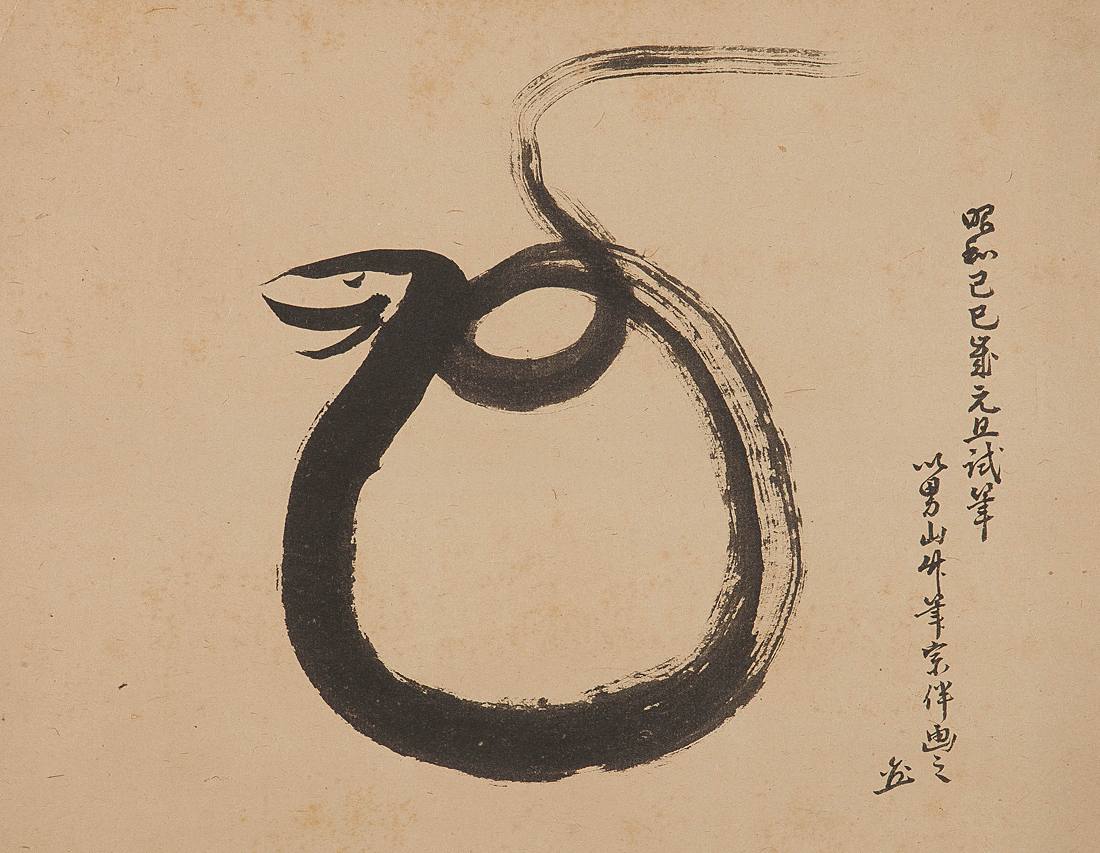 昭和己巳歳元旦試筆
以男山竹筆宗伴画之